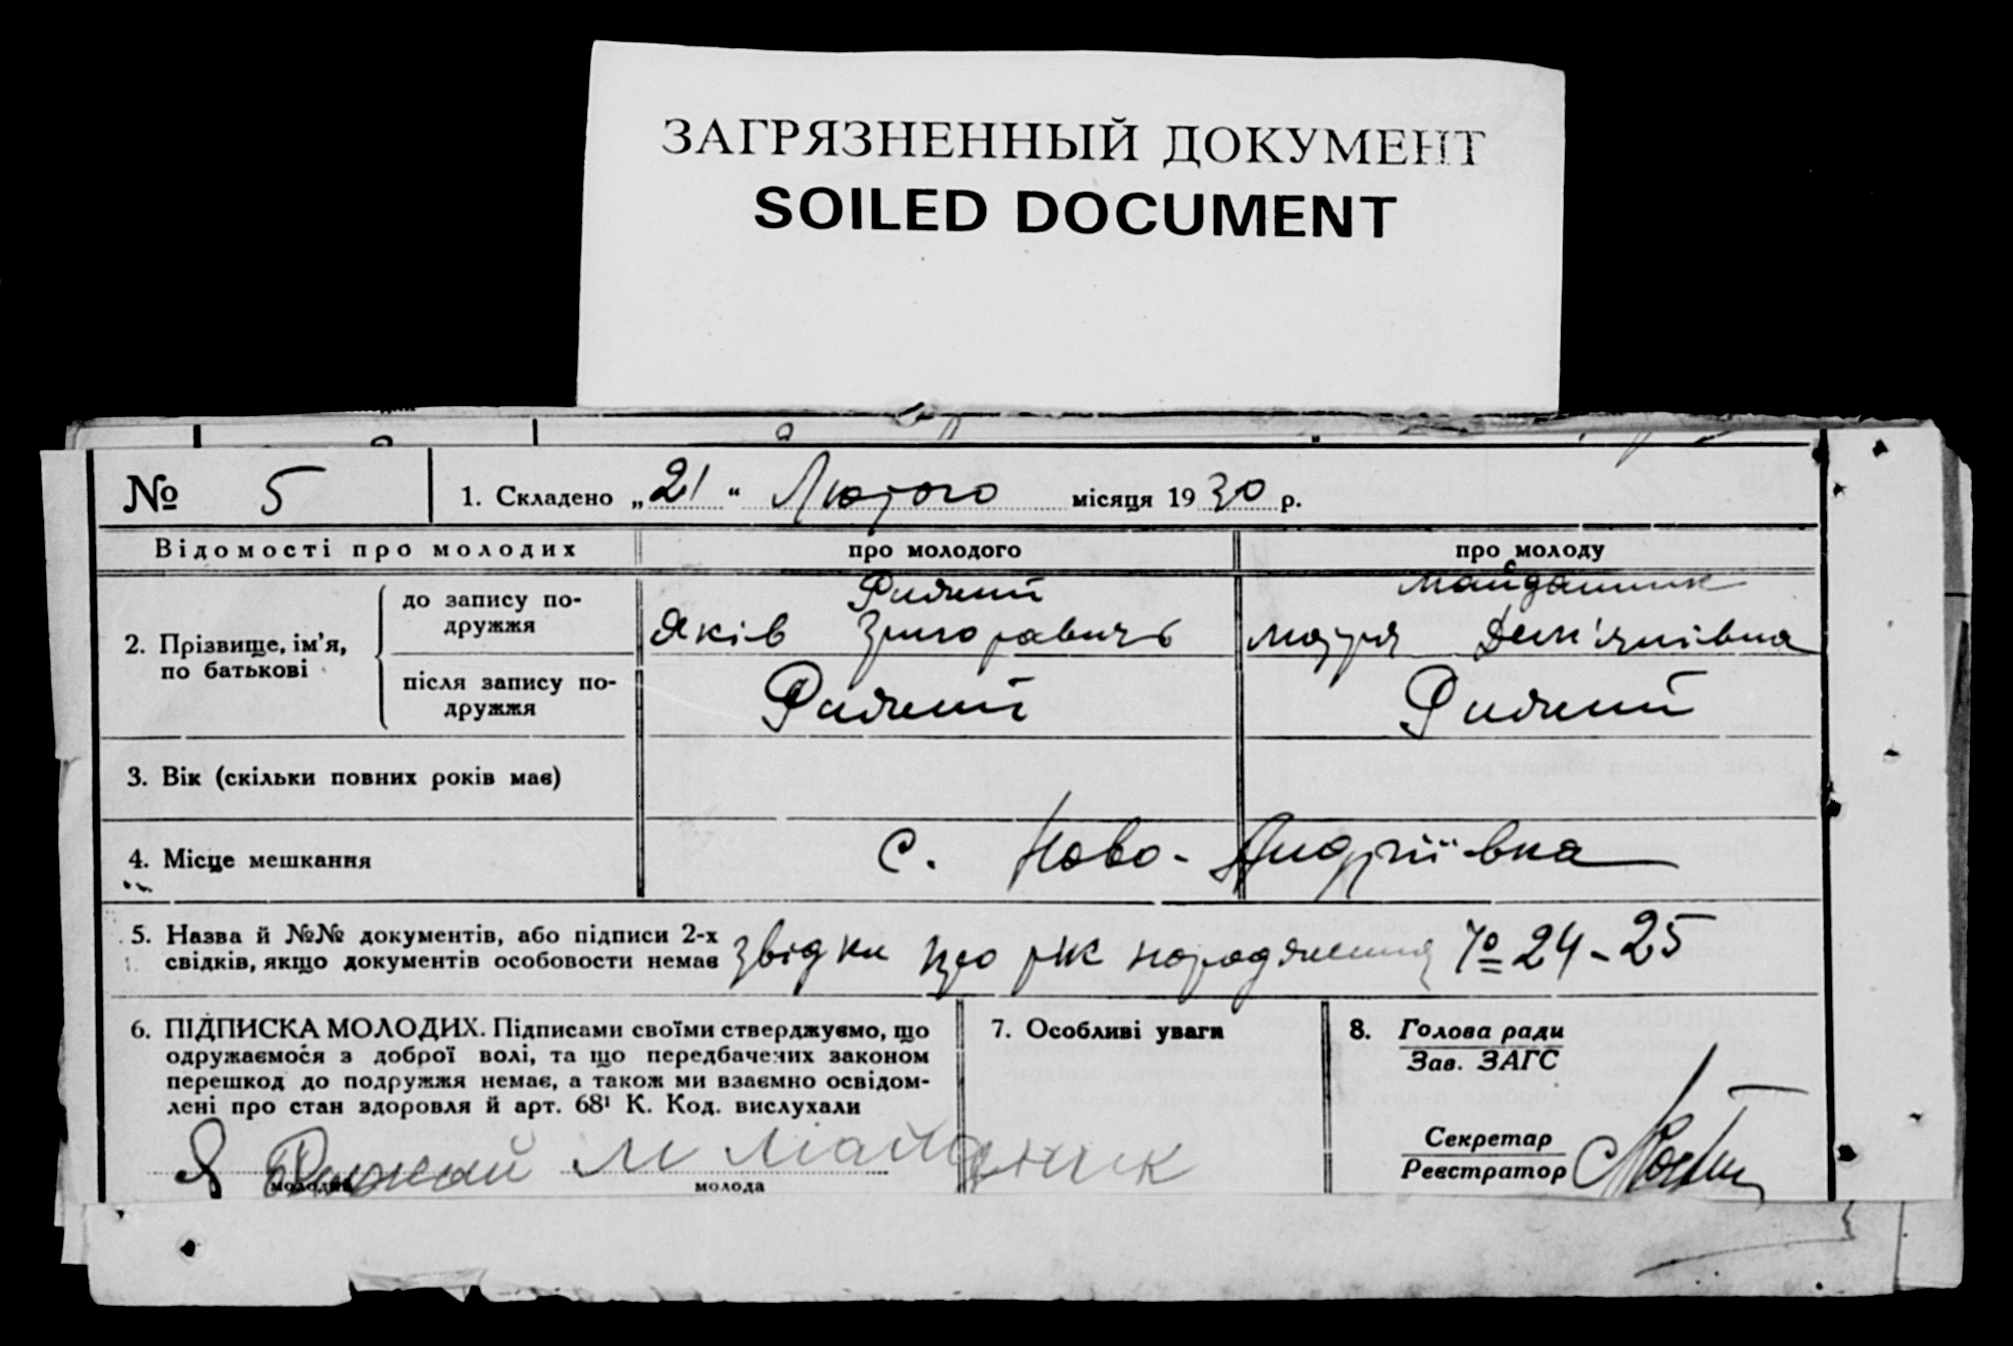 ЗАГРЯЗНЕННЫЙ ДОКУМЕНТ
SOILED DOCUMENT
№ 5 1. Складено „21“ Лютого місяця 1930 р.
Відомості про молодих про молодого про молоду
2. Прізвище, ім'я, по батькові
до запису по-
дружжя
Яків Григоровичь
Майданник
Дем'янівна
після запису по-
дружжя
3. Вік (скільки повних років має)
4. Місце мешкання с. Ново-Андріївка
5. Назва й №№ документів, або підписи 2-х
свідків, якщо документів особовости немає
звідки про рік народження № 24-25
6. ПІДПИСКА МОЛОДИХ. Підписами своїми стверджуємо, що
одружаємося з доброї волі, та що передбачених законом
перешкод до подружжя немає, а також ми взаємно освідом-
лені про стан здоровля й арт. 68¹ К. Код. вислухали
молодий
молода
7. Особливі уваги
8. Голова ради
Зав. ЗАГС
Секретар
Реєстратор